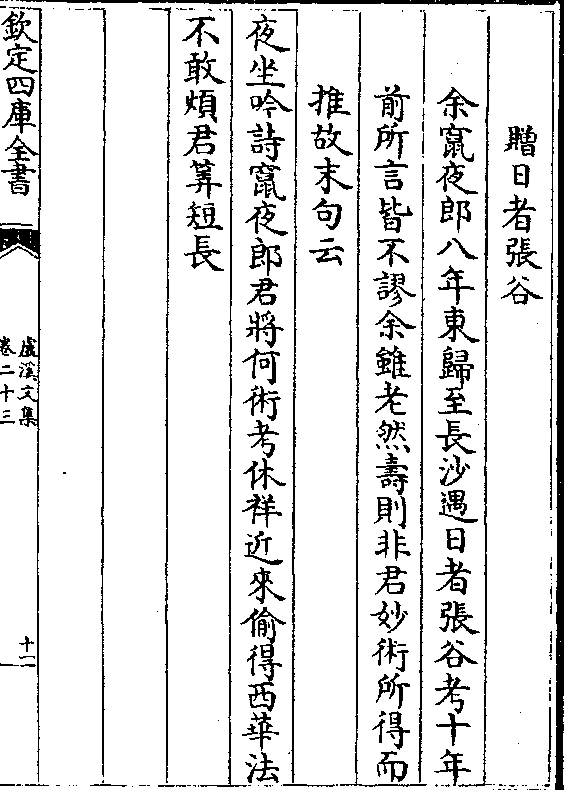 贈日者張谷
余竄夜郎八年東歸至長沙遇日者張谷考十年
前所言皆不謬余雖老然壽則非君妙術所得而
推故末句云
夜坐吟詩竄夜郎君將何術考休祥近來偷得西華法
不敢煩君筭短長
欽定四庫全書
盧溪文集
卷二十三
十一